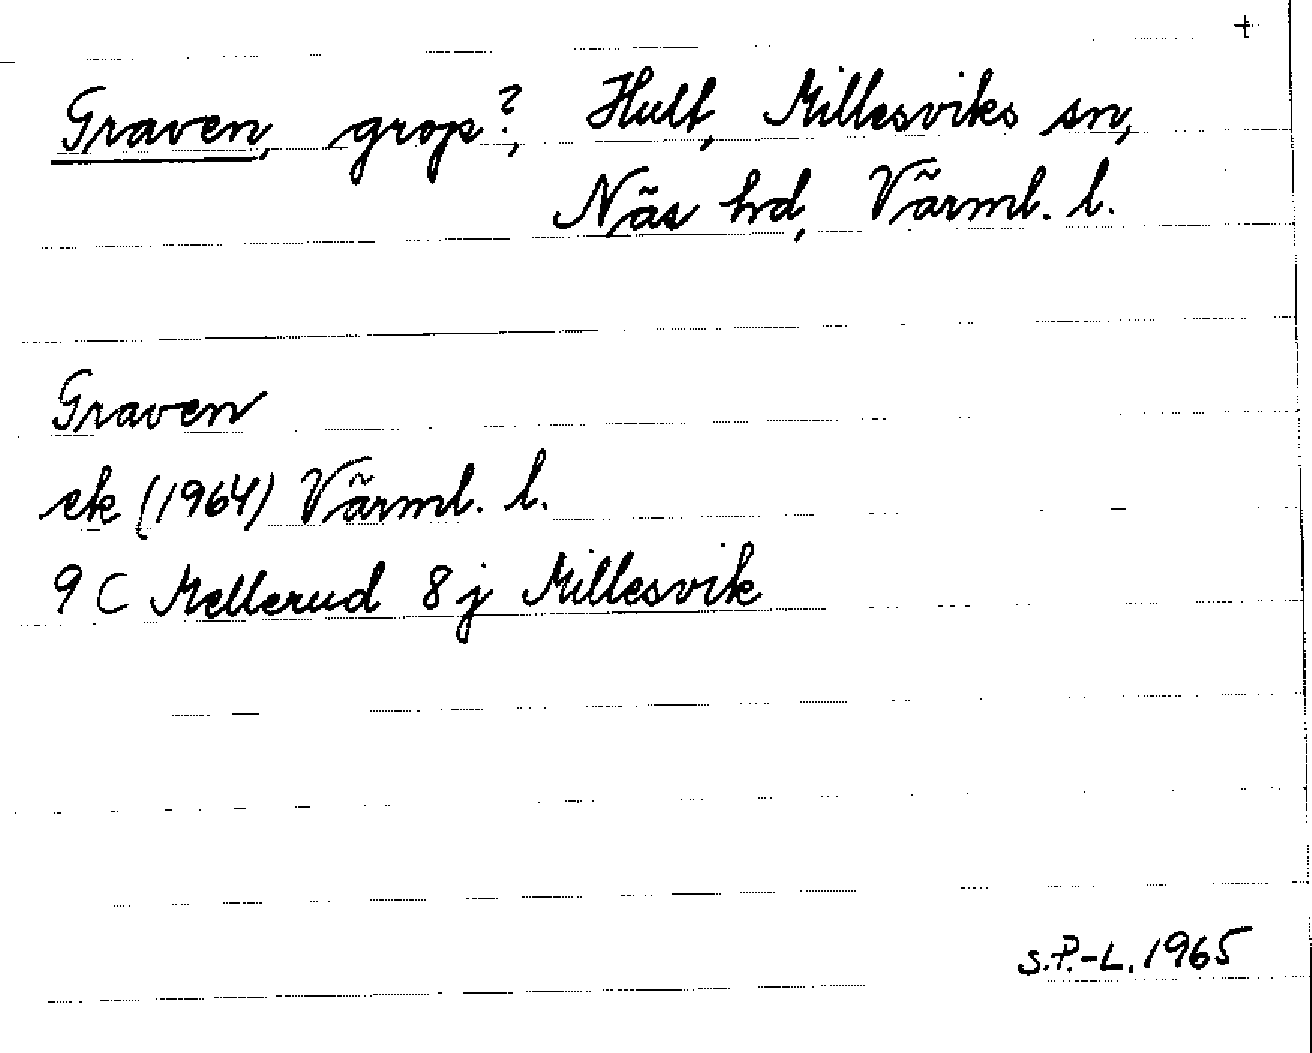 +
Graven, grop?, Hult, Millesviks sn,
Näs hd, Värml. l.
Graven
ek (1964) Värml. l.
9 C Mellerud 8 j Millesvik
S.P.-L. 1965